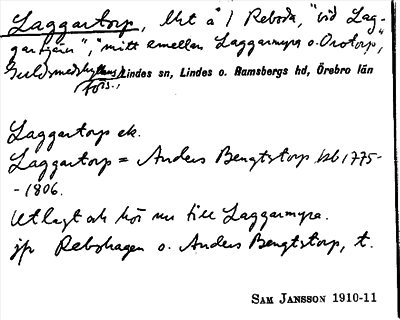 Laggartorp, Uet å / Reboda, "vid Lag-
gartjärn", "mitt emellan Laggarmyra o. Orotorp",
Guldsmedshyttans Lindes sn, Lindes o. Ramsbergs hd, Örebro län
förs.,
Laggartorp ek.
Laggartorp = Anders Bengtstorp kb 1775-
-1806.
Utlagt och hör nu till Laggarmyra.
jfr Rebohagen o. Anders Bengtstorp, t.
SAM JANSSON 1910-11